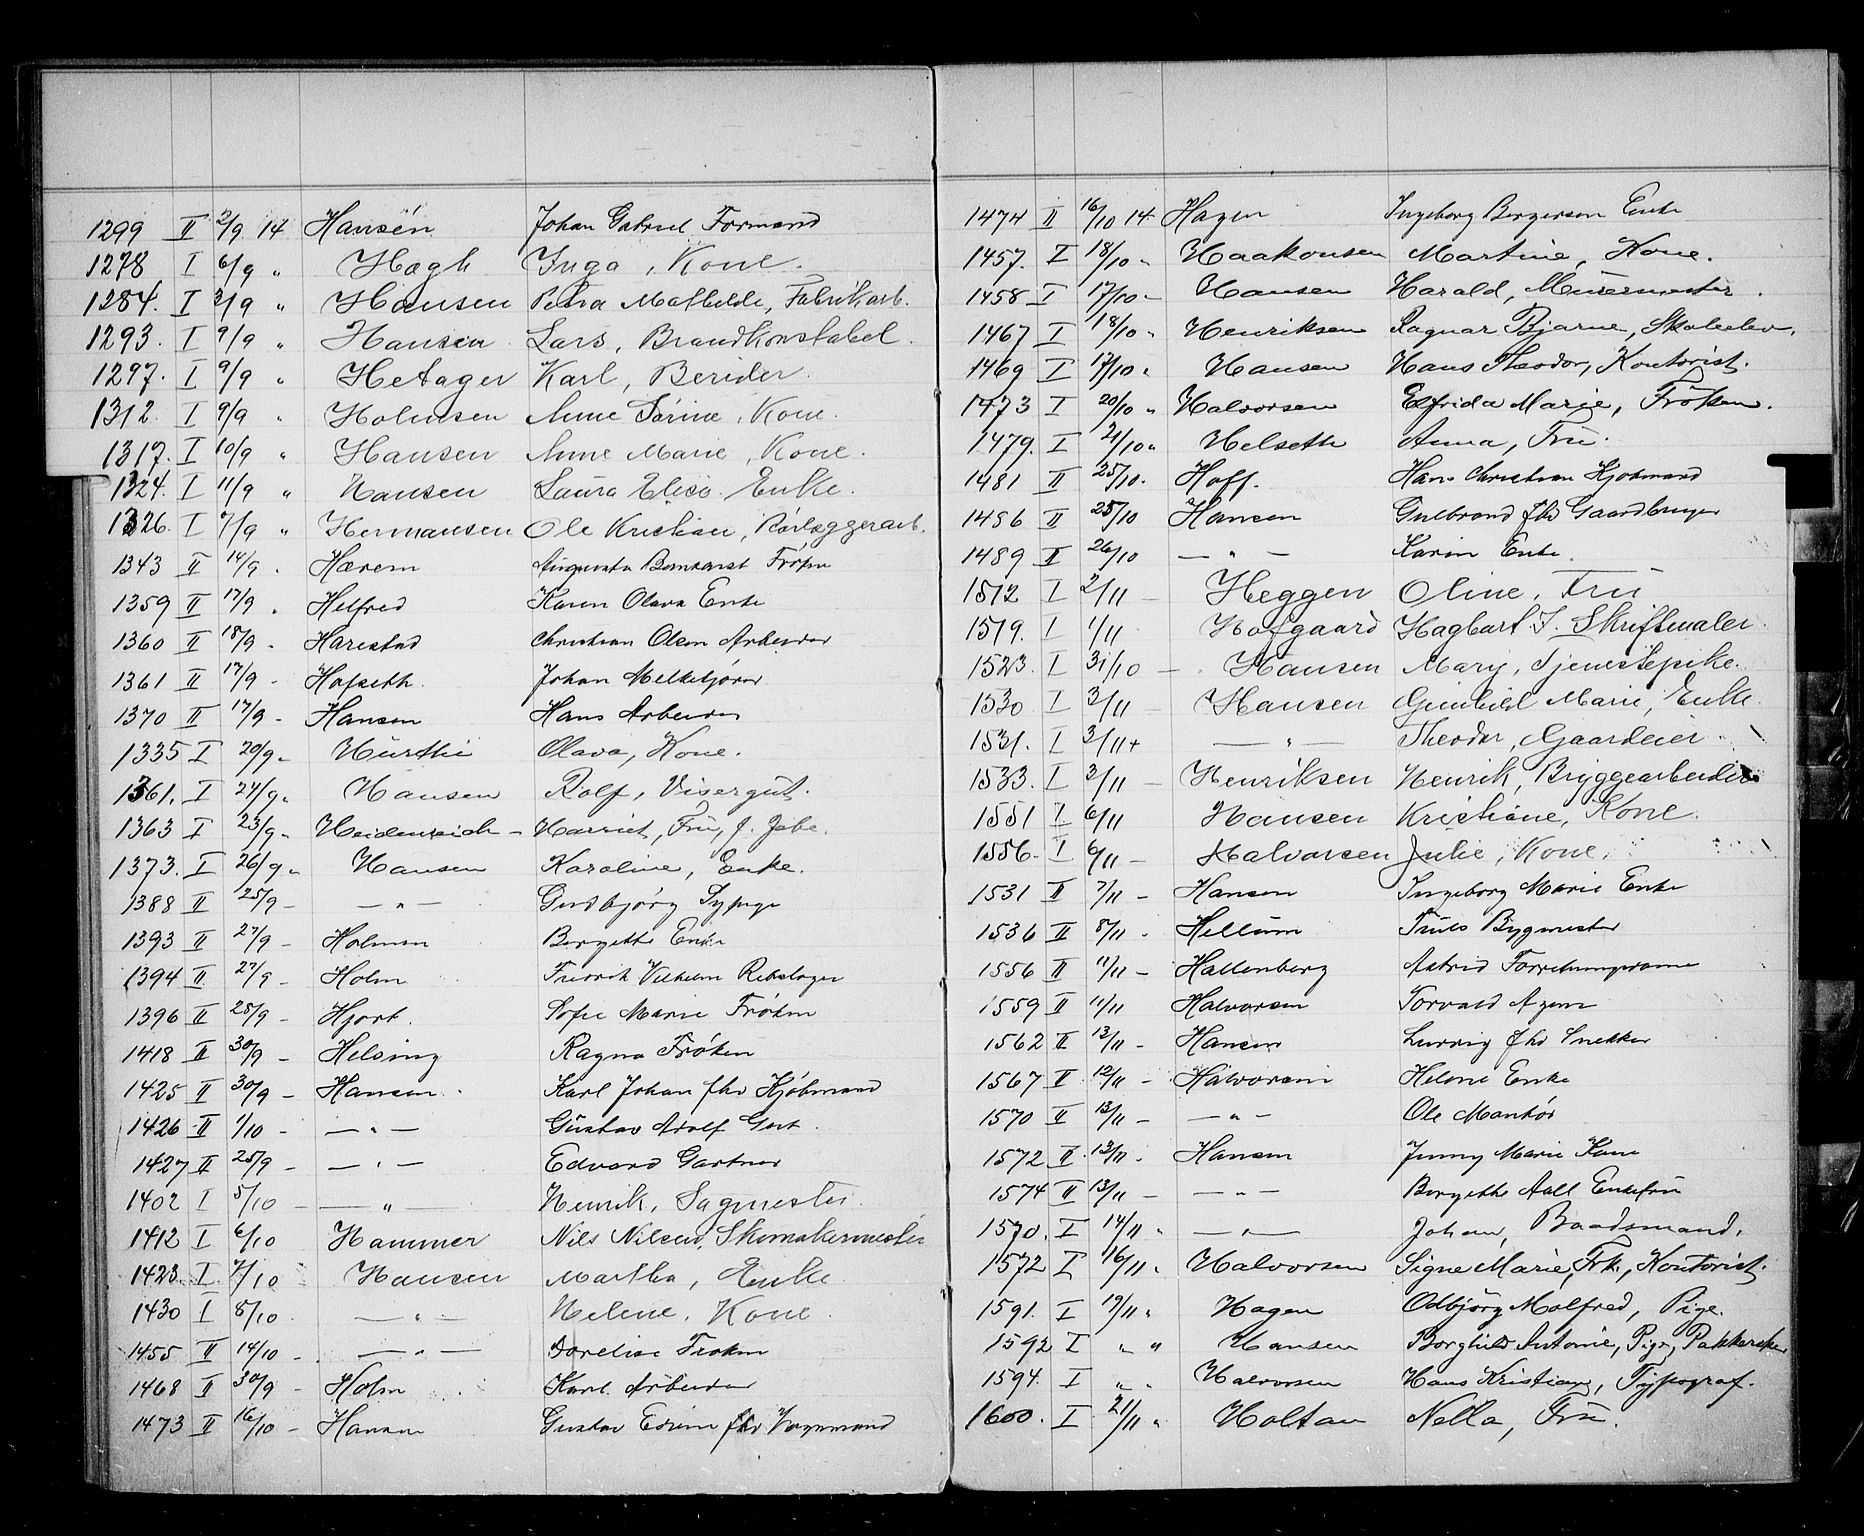 1299 II 2/9 14 Hansen Johan Gabriel Formand
1278 I 6/9 " Høgh Inga, Kone.
1284. I 3/9 " Hansen Petra Mathilde, Fabrikarb.
1293. I 9/9 " Hansen Lars, Brandkonstabel.
1297. I 9/9 " Hetager Karl, Berider.
1312. I 9/9 " Holmsen Anne Sørine, Kone.
1317. I 10/9 " Hansen Anne Marie, Kone.
1324. I 11/9 " Hansen Laura Elise. Enke.
1326. I 7/9 " Hermansen Ole Kristian, Rørlæggerarb.
1343 II 14/9 . Hærem Augusta Frøken
1359 II 17/9 . Helfred Karen Olava Enke
1360 II 18/9 . Harestad Christian Olsen Arbeider
1361 II 17/9 - Hofseth. Johan Melkekjører
1370 II 17/9 - Hansen Hans Arbeider
1335 I 20/9 " Hurthi Olava, Kone.
1361. I 24/9 " Hansen Rolf, Visergut.
1363 I 23/9 " Heidenreich - Harriet, Fru, f. Jebe.
1373. I 26/9 " Hansen Karoline, Enke.
1388 II 25/9 - — " — Gudbjørg Sypige
1393 II 27/9 - Holmen Bergette Enke
1394 II 27/9 - Holm Fredrik Vilhelm Rebslager
1396 II 28/9 - Hjort. Sofie Marie Frøken
1418 II 30/9 - Helsing Ragna Frøken
1425 II 30/9 - Hansen. Karl Johan fhv Kjøbmand
1426 II 1/10 - — " — Gustav Adolf Gut.
1427 II 25/9 - — " — Edvard Gartner
1402 I 5/10 - — " — Henrik, Sagmester.
1412 I 6/10 Hammer Nils Nilsen, Skomakermester
1423. I 7/10 Hansen Martha, Enke.
1430 I 8/10 — " — Helene, Kone.
1455 II 14/10 - — " — Dorelise Frøken
1468 II 30/9 - Holm Karl Arbeider
1473 II 16/10 - Hansen Gustav Edvin fhv Vognmand
1474 II 16/10 14 Hagen Ingeborg Bergersen Enke
1457. I 18/10 " Haakonsen Martine, Kone.
1458 I 17/10 - Hansen Harald, Murermester.
1467 I 18/10 " Henriksen Ragnar Bjarne, Skoleelev.
1469 I 17/10 " Hansen Hans Theodor, Kontorist.
1473 I 20/10 " Halvorsen Elfrida Marie, Frøken.
1479. I 21/10 " Helseth Anna, Fru.
1481 II 25/10. Hoff. Hans Christian Kjøbmand
1486 II 25/10 Hansen Gulbrand fhv Gaardbruger
1489 II 26/10 — " — Karen Enke.
1512 I 2/11 — Heggen Oline, Fru
1519. I 1/11 Hofgaard Hagbart J. Skriftmaler.
1523. I 31/10 — Hansen Mary, Tjenestepike.
1530 I 3/11 — Hansen Gunhild Marie, Enke.
1531. I 3/11 + — " — Theodor, Gaardeier.
1533. I 3/11 — Henriksen Henrik, Bryggearbeider
1551 I 6/11 Hansen Kristiane, Kone.
1556. I 6/11 — Halvorsen Julie, Kone.
1531 II 7/11 - Hansen Ingeborg Marie Enke
1536 II 8/11 . Hellum Truls Bygmester
1556 II 11/11 - Hallenberg Astrid
1559 II 11/11 Halvorsen Torvald Agent
1562 II 13/11 - Hansen Ludvig fhv Snekker
1567 II 12/11 - Halvorsen Helene Enke
1570 II 13/11 - — " — Ole Maskør
1572 II 13/11 . Hansen Jenny Marie Kone
1574 II 13/11 - — " — Bergette Aall Enkefru
1570. I 14/11 " — " — Johan, Baadsmand.
1572 I 16/11 " Halvorsen Signe Marie, Frk., Kontorist.
1591. I 19/11 " Hagen Odbjørg Molfred, Pige.
1592 I " " Hansen Borghild Antonie, Pige, Pakkerske
1594. I " " Halvorsen Hans Kristian, Typograf.
1600. I 21/11 " Holtan Nella, Fru.